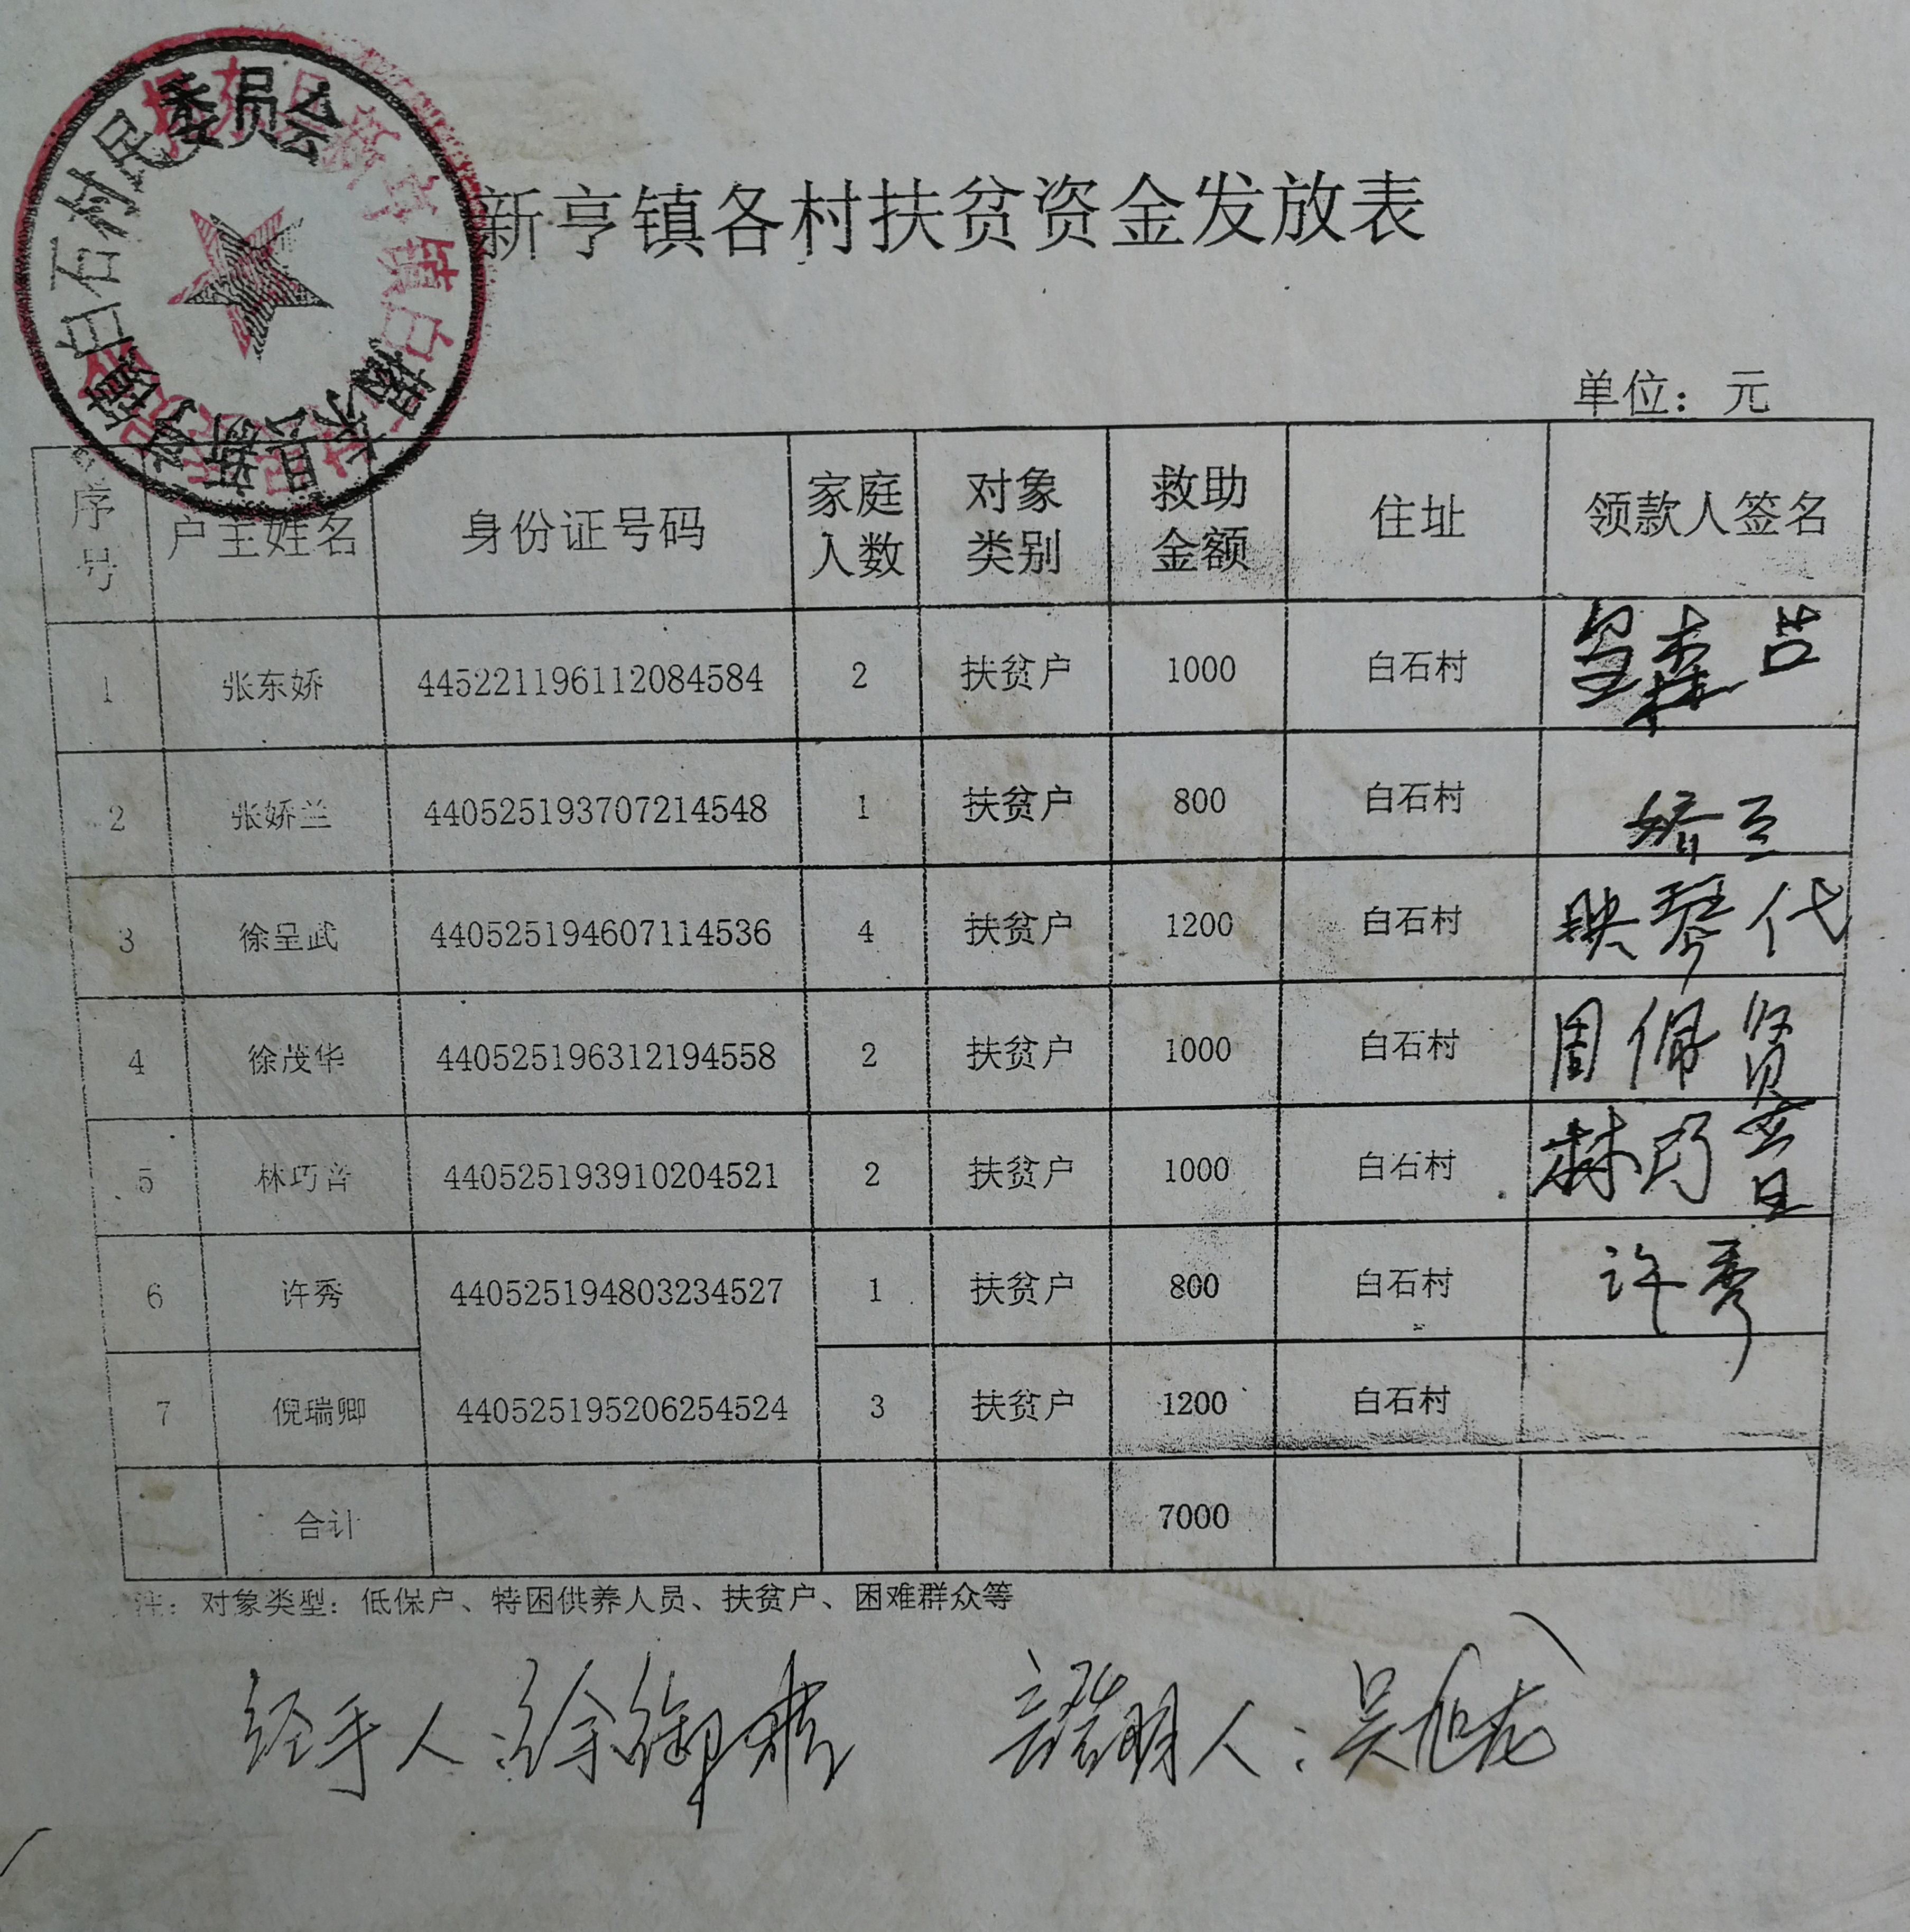 揭东县新亨镇白石村民委员会
新亨镇各村扶贫资金发放表
单位：元
序号 户主姓名 身份证号码 家庭人数 对象类别 救助金额 住址 领款人签名
1 张东娇 445221196112084584 2 扶贫户 1000 白石村
2 张娇兰 440525193707214548 1 扶贫户 800 白石村
3 徐呈武 440525194607114536 4 扶贫户 1200 白石村 映琴代
4 徐茂华 440525196312194558 2 扶贫户 1000 白石村 周佩贤
5 林巧音 440525193910204521 2 扶贫户 1000 白石村 林巧音
6 许秀 440525194803234527 1 扶贫户 800 白石村 许秀
7 倪瑞卿 440525195206254524 3 扶贫户 1200 白石村
合计 7000
注：对象类型：低保户、特困供养人员、扶贫户、困难群众等
经手人：徐御 證明人：吴旭龙